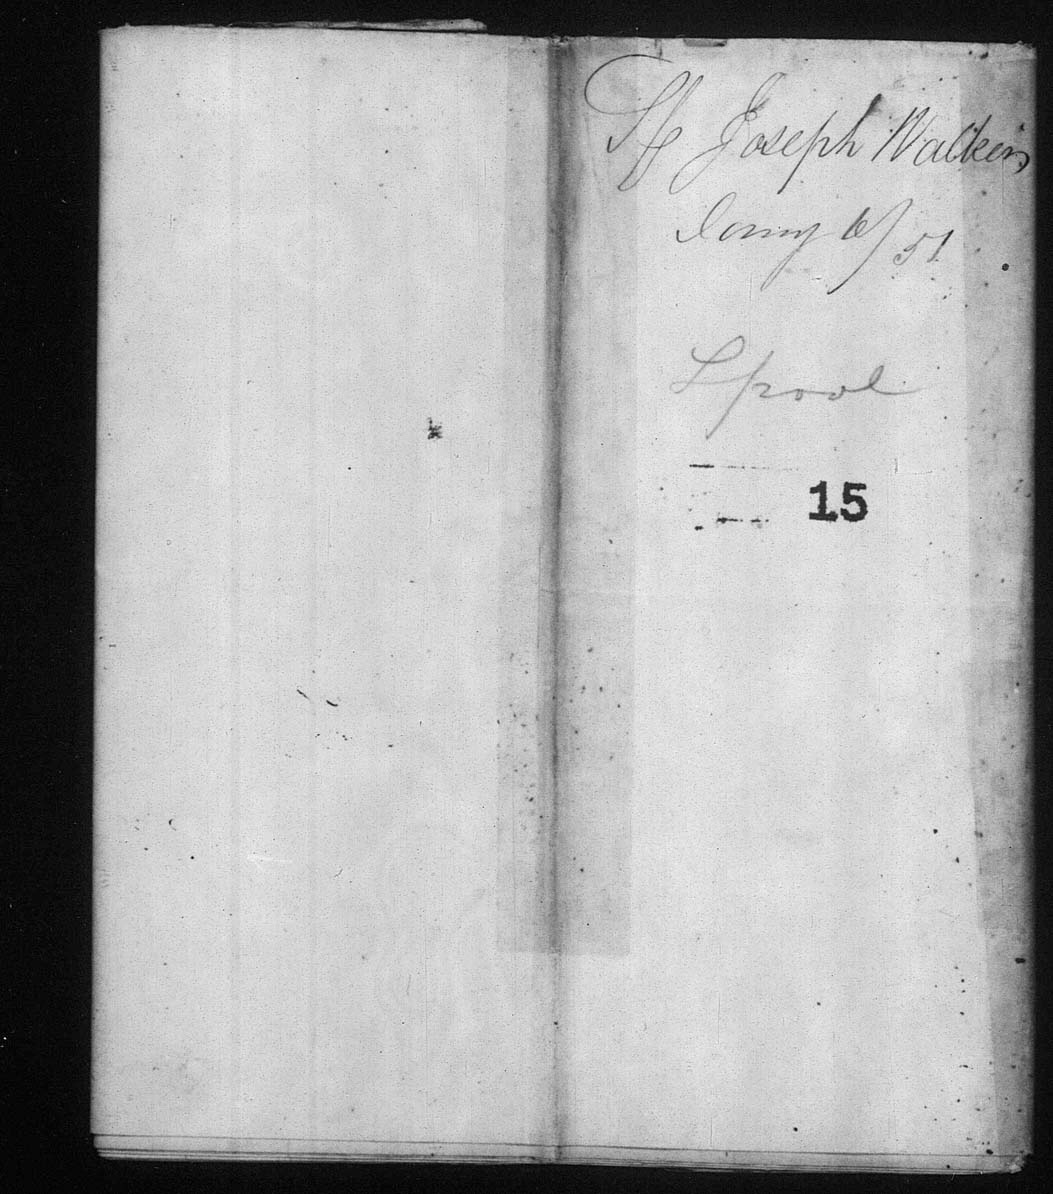 Sh Joseph Walker
Jany 6/51
Lpool
15